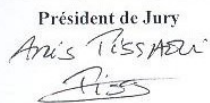 Président de Jury
Anis Tissaoui